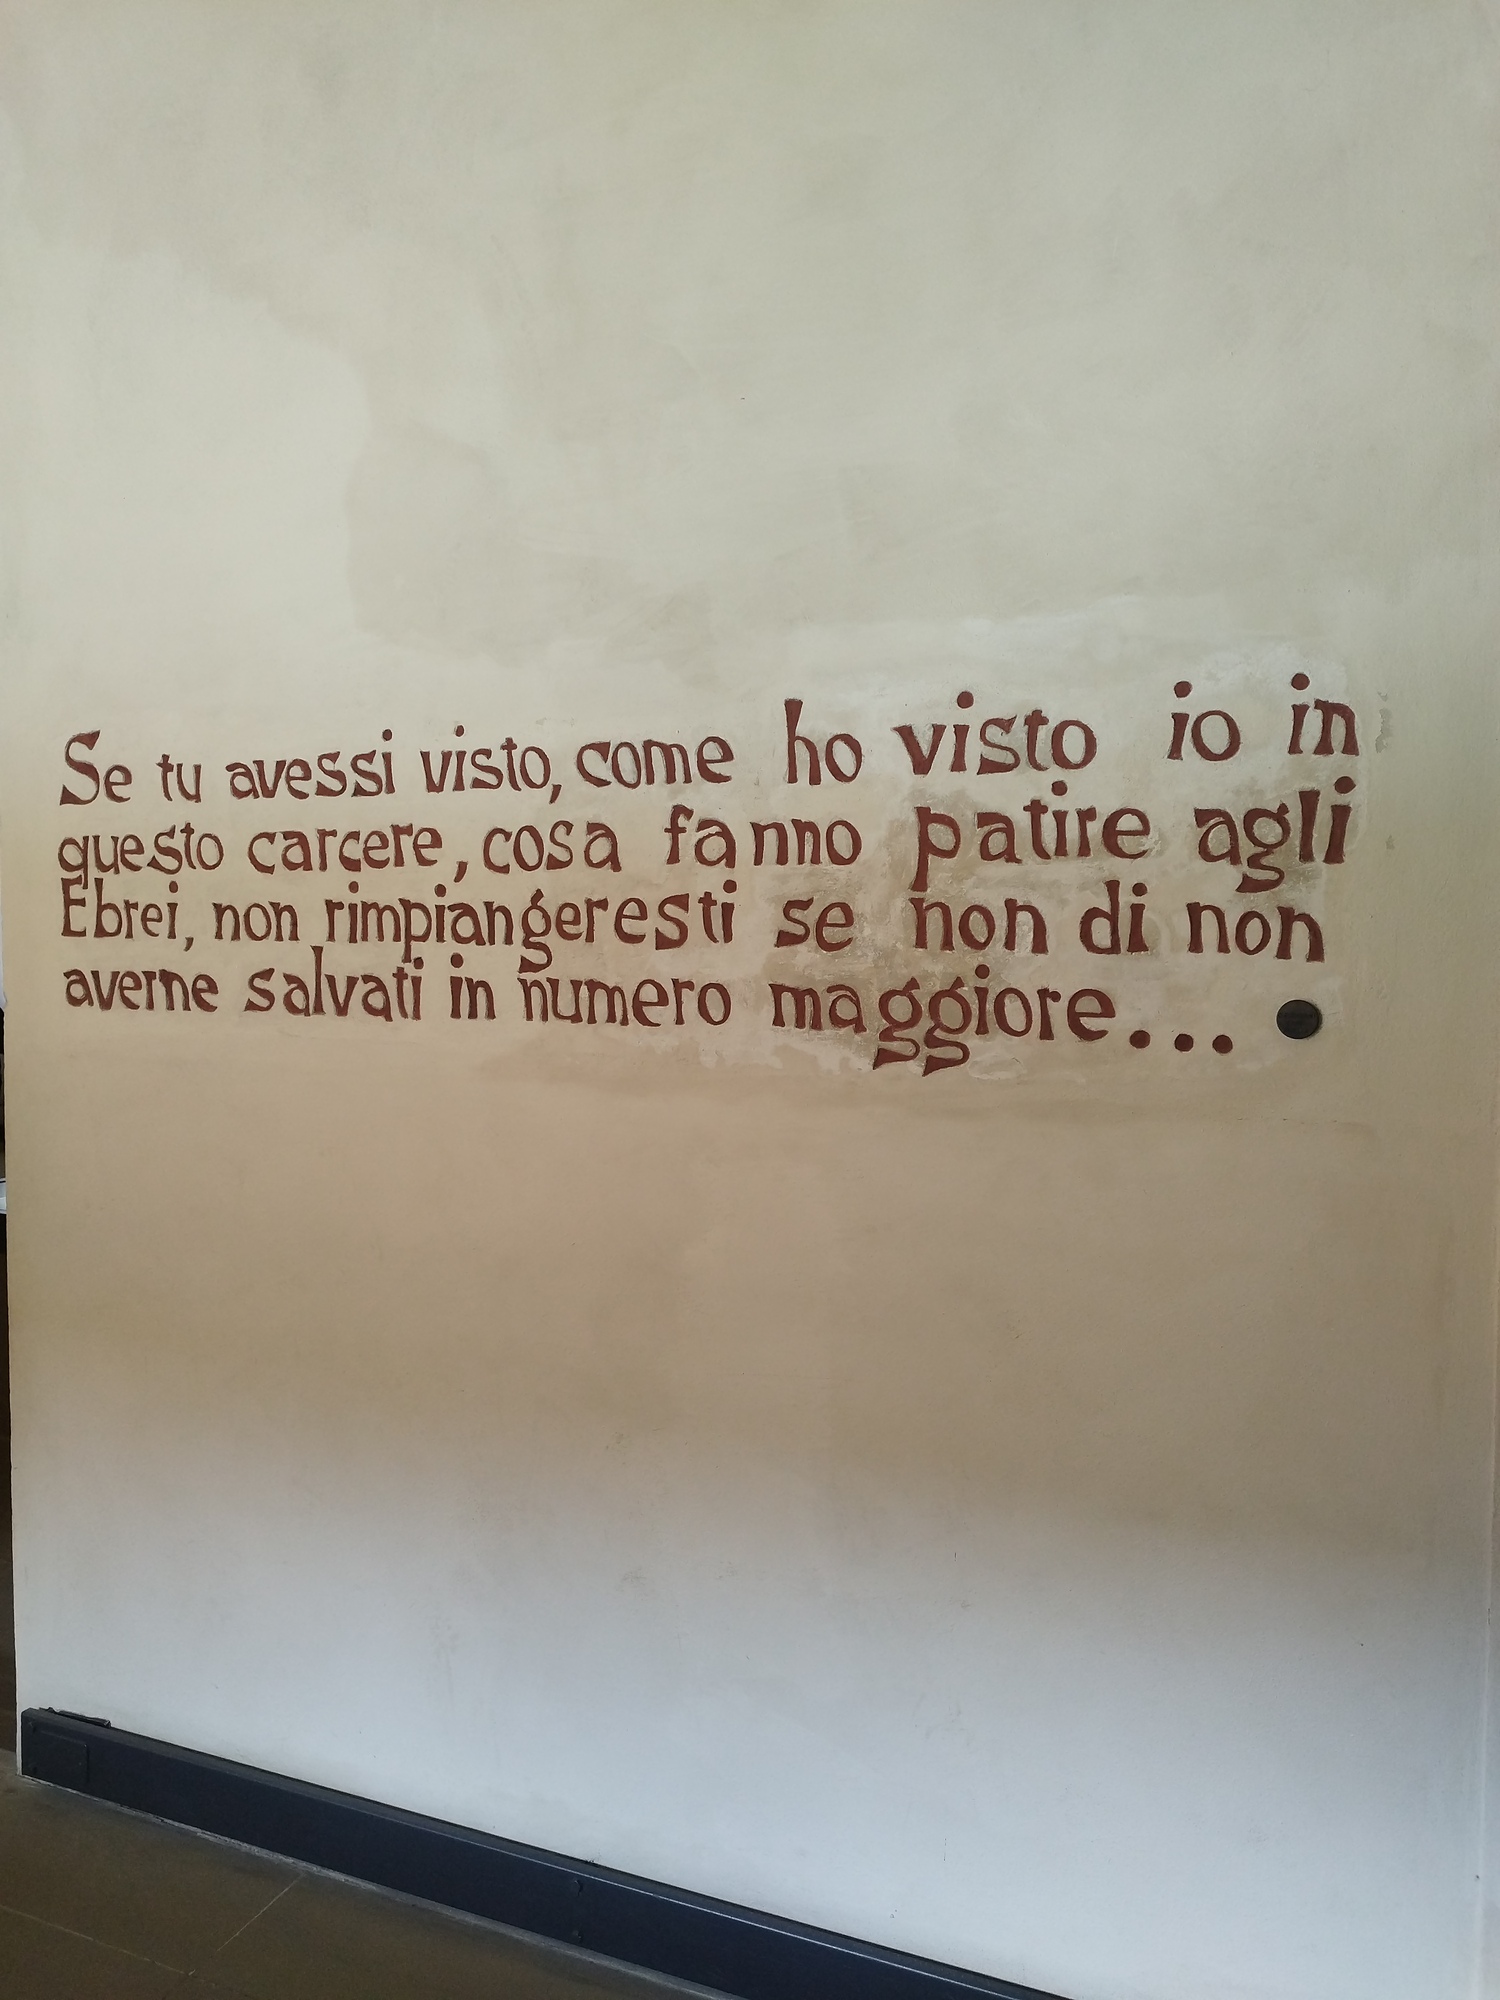 Se tu avessi visto, come ho visto io in
questo carcere, cosa fanno patire agli
Ebrei, non rimpiangeresti se non di non
averne salvati in numero maggiore...